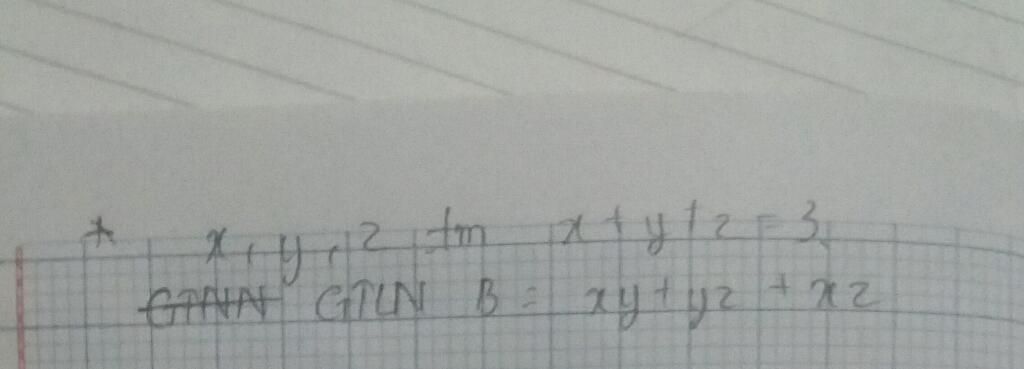 * x, y, z tm x + y + z = 3
GTNN GTLN B = xy + yz + xz